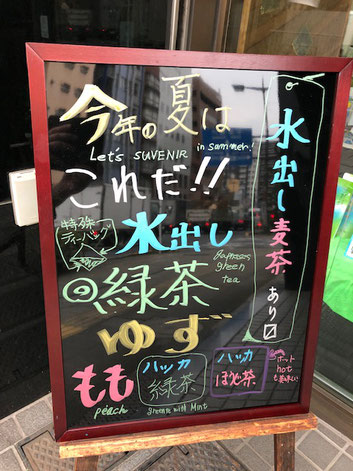 今年の夏は
Let's SUVENIR in summer!
これだ!!
特殊
ティーバッグ
水出し
緑茶
green
tea
ゆず
もも
peach
ハッカ
緑茶
greente with Mint
ハッカ
ほうじ茶
ホット
hot
も美味しい!
水出し麦茶あり〼